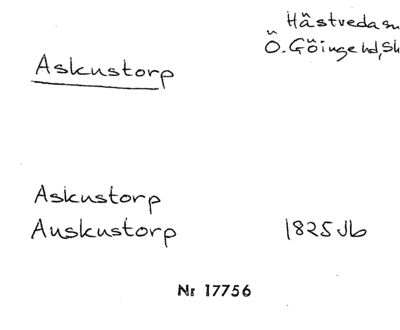 Hästveda sn
Askustorp
Ö. Göinge hd, Sk
Askustorp
Auskustorp 1825 Jb
Nr 17756